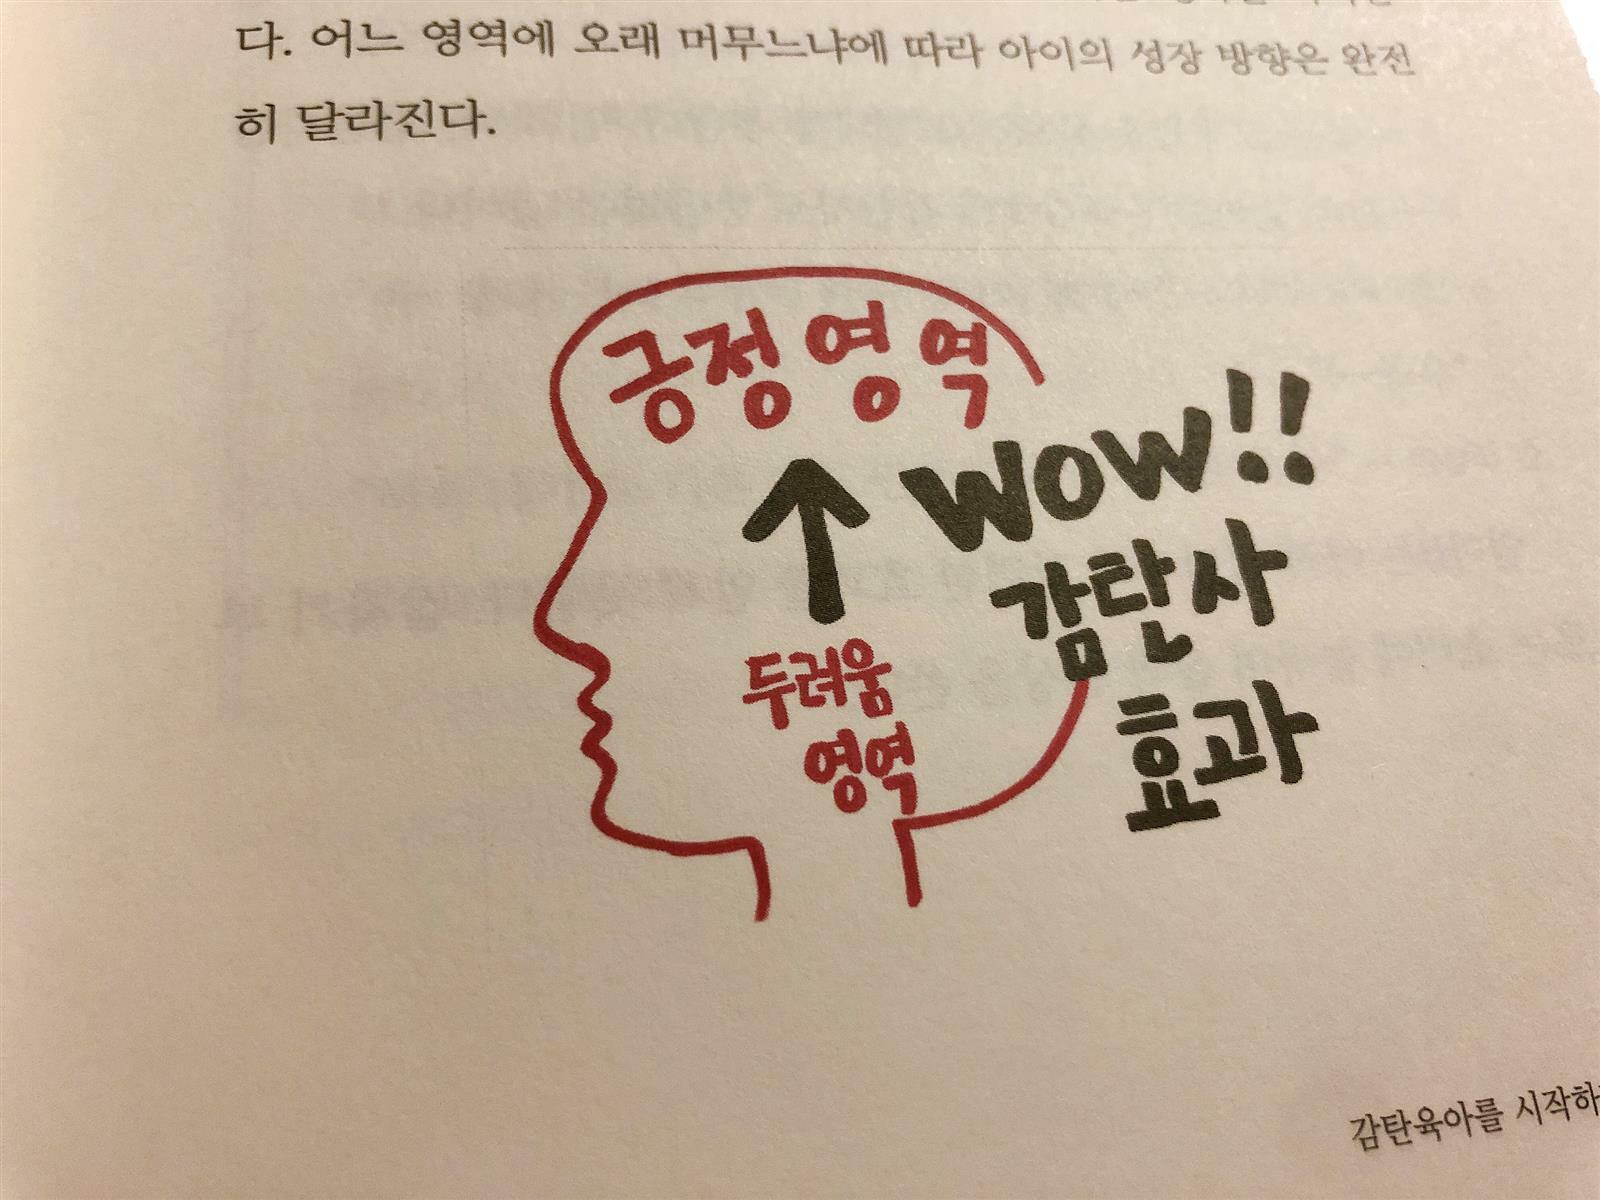 다. 어느 영역에 오래 머무느냐에 따라 아이의 성장 방향은 완전
히 달라진다.
긍정 영역
WOW!!
감탄사
효과
두려움
영역
감탄육아를 시작하